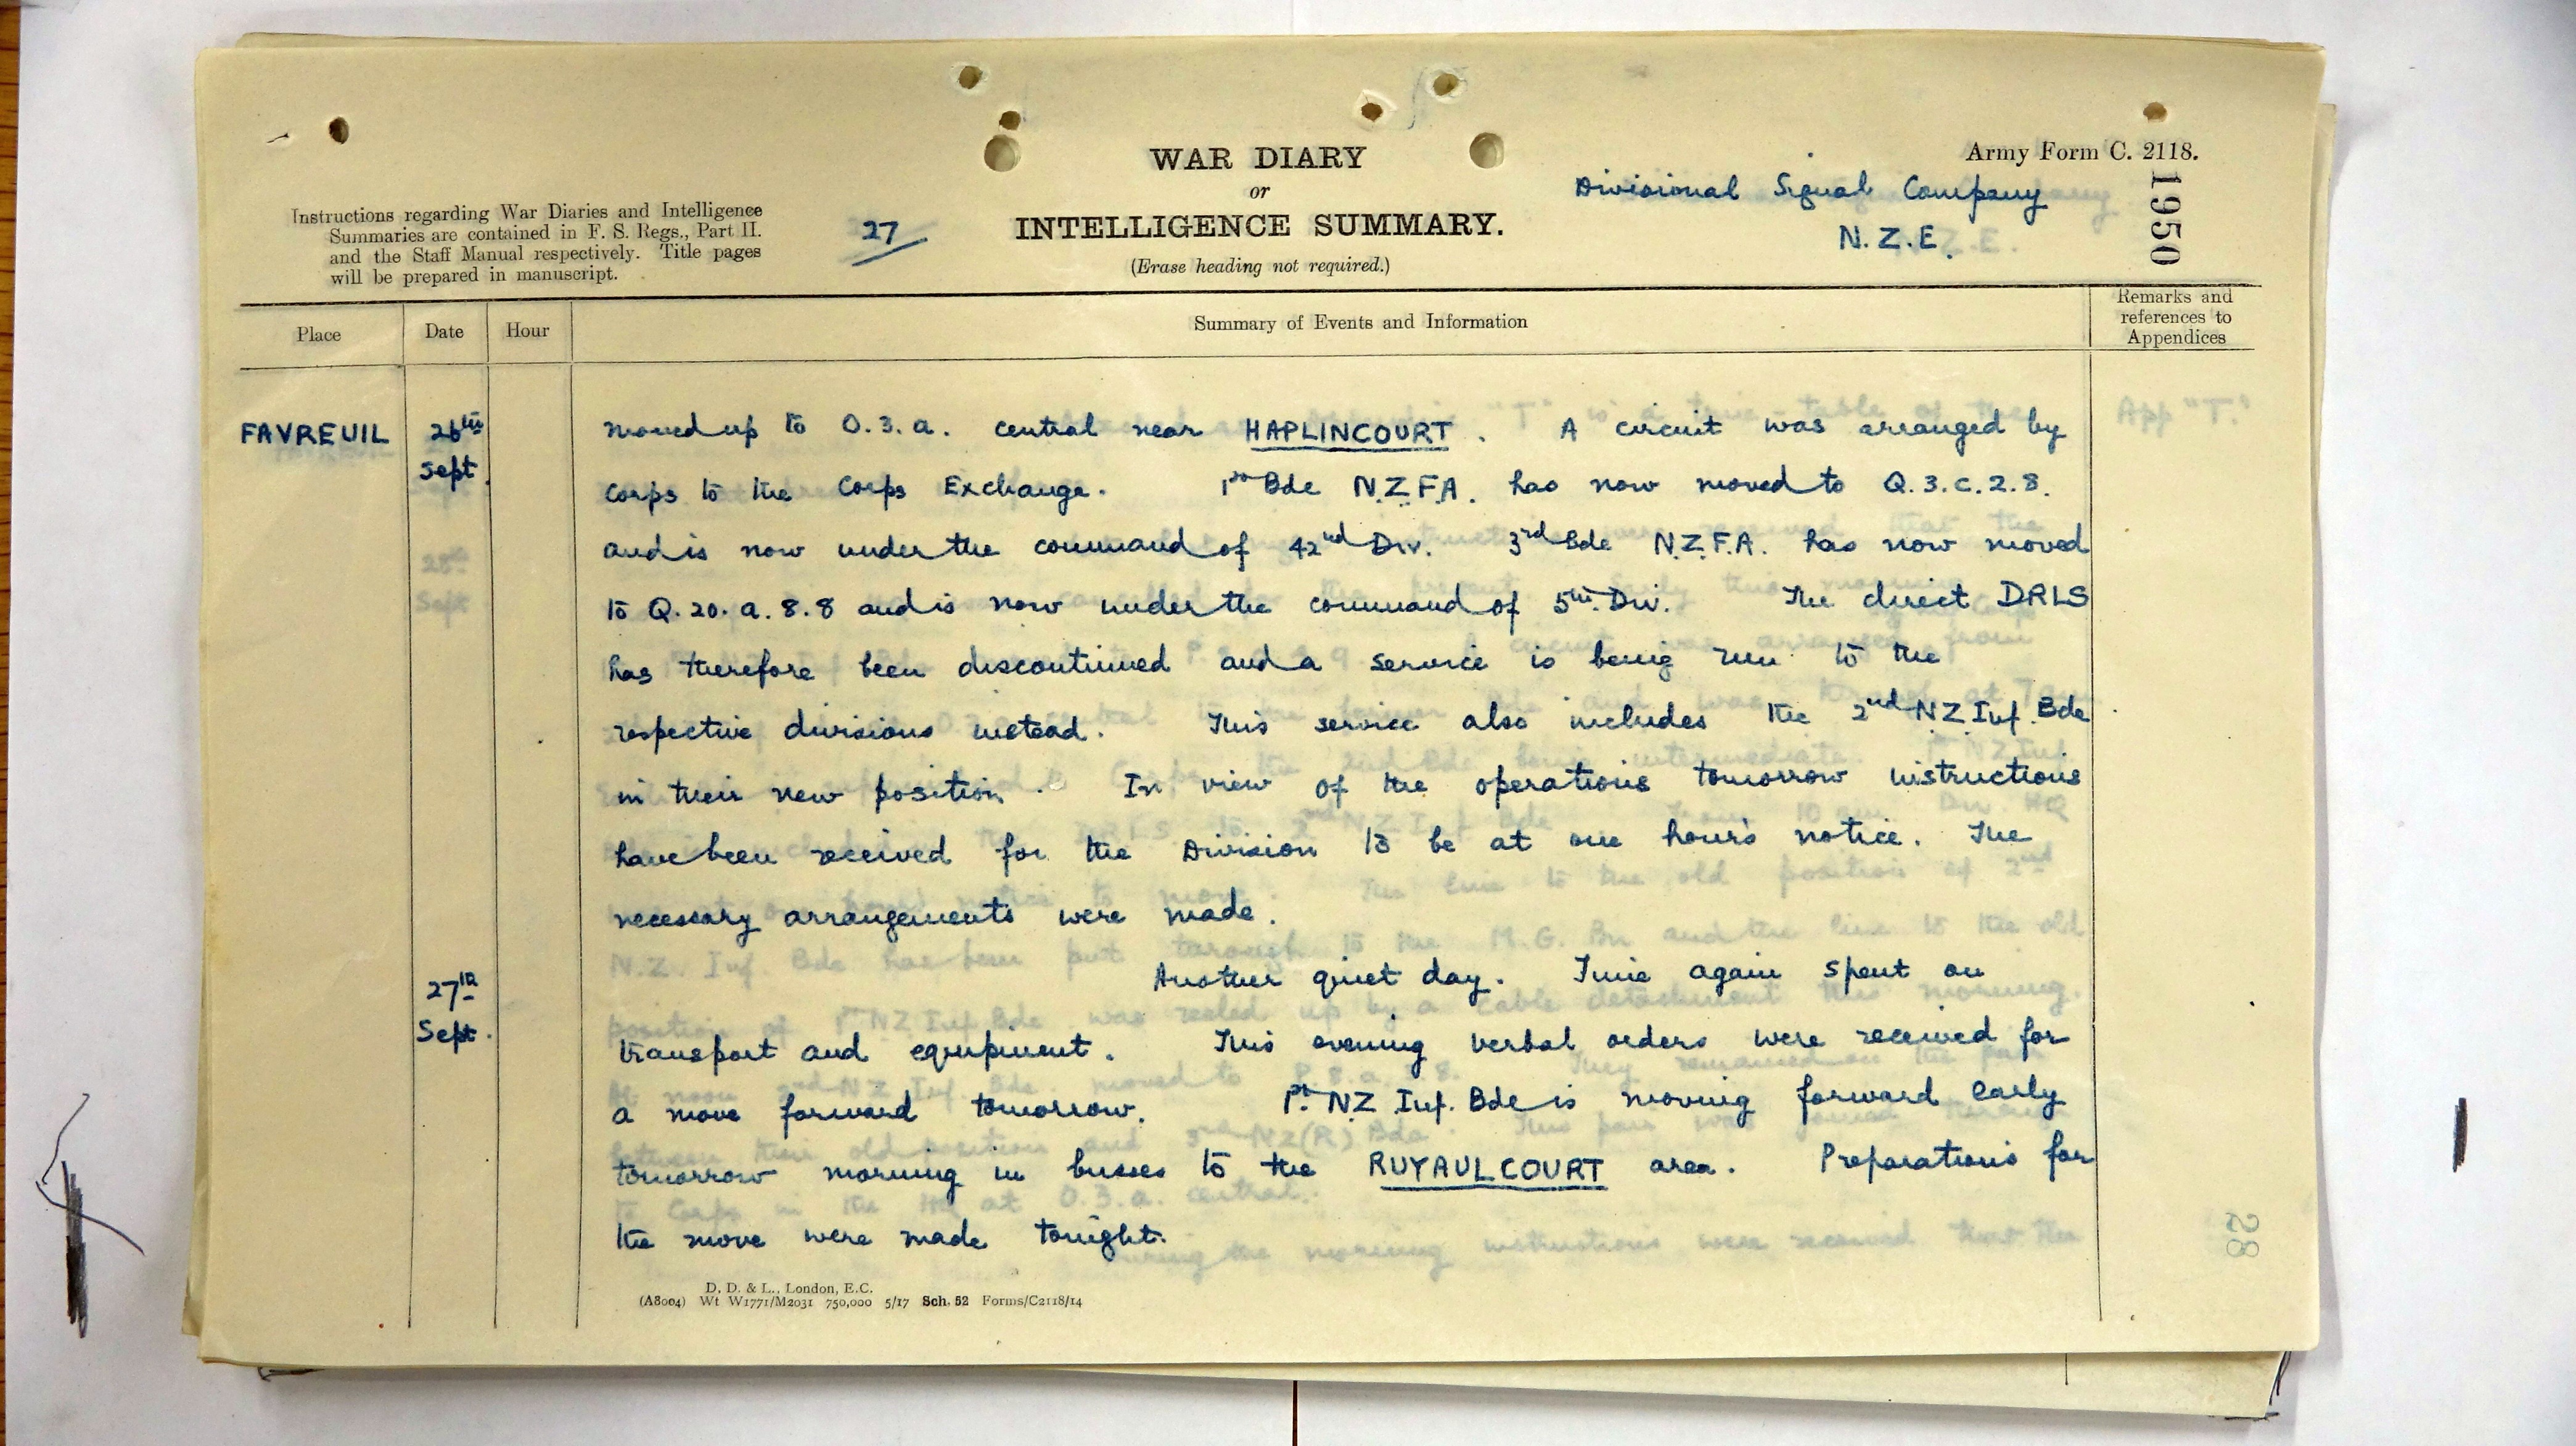 WAR DIARY
or
INTELLIGENCE SUMMARY.
(Erase heading not required.)
Army Form C. 2118.
Divisional Signal Company
N.Z.E.
1950
Instructions regarding War Diaries and Intelligence
Summaries are contained in F. S. Regs., Part II.
and the Staff Manual respectively. Title pages
will be prepared in manuscript.
27
Place
Date
Hour
Summary of Events and Information
Remarks and
references to
Appendices
FAVREUIL
26th
Sept.
moved up to O.3.a. central near HAPLINCOURT. A circuit was arranged by
Corps to the Corps Exchange. 1st Bde N.Z.F.A. has now moved to Q.3.c.2.8.
and is now under the command of 42nd Div. 3rd Bde N.Z.F.A. has now moved
to Q.20.a.8.8 and is now under the command of 5th Div. The direct DRLS
has therefore been discontinued and a service is being run to the
respective divisions instead. This service also includes the 2nd NZ Inf. Bde
in their new position. In view of the operations tomorrow instructions
have been received for the Division to be at one hour's notice. The
necessary arrangements were made.
27th
Sept.
Another quiet day. Time again spent on
transport and equipment. This evening verbal orders were received for
a move forward tomorrow. 1st NZ Inf. Bde is moving forward early
tomorrow morning in busses to the RUYAULCOURT area. Preparations for
the move were made tonight.
D. D. & L., London, E.C.
(A8004) Wt W1771/M2031 750,000 5/17 Sch. 52 Forms/C2118/14
App "T."
28